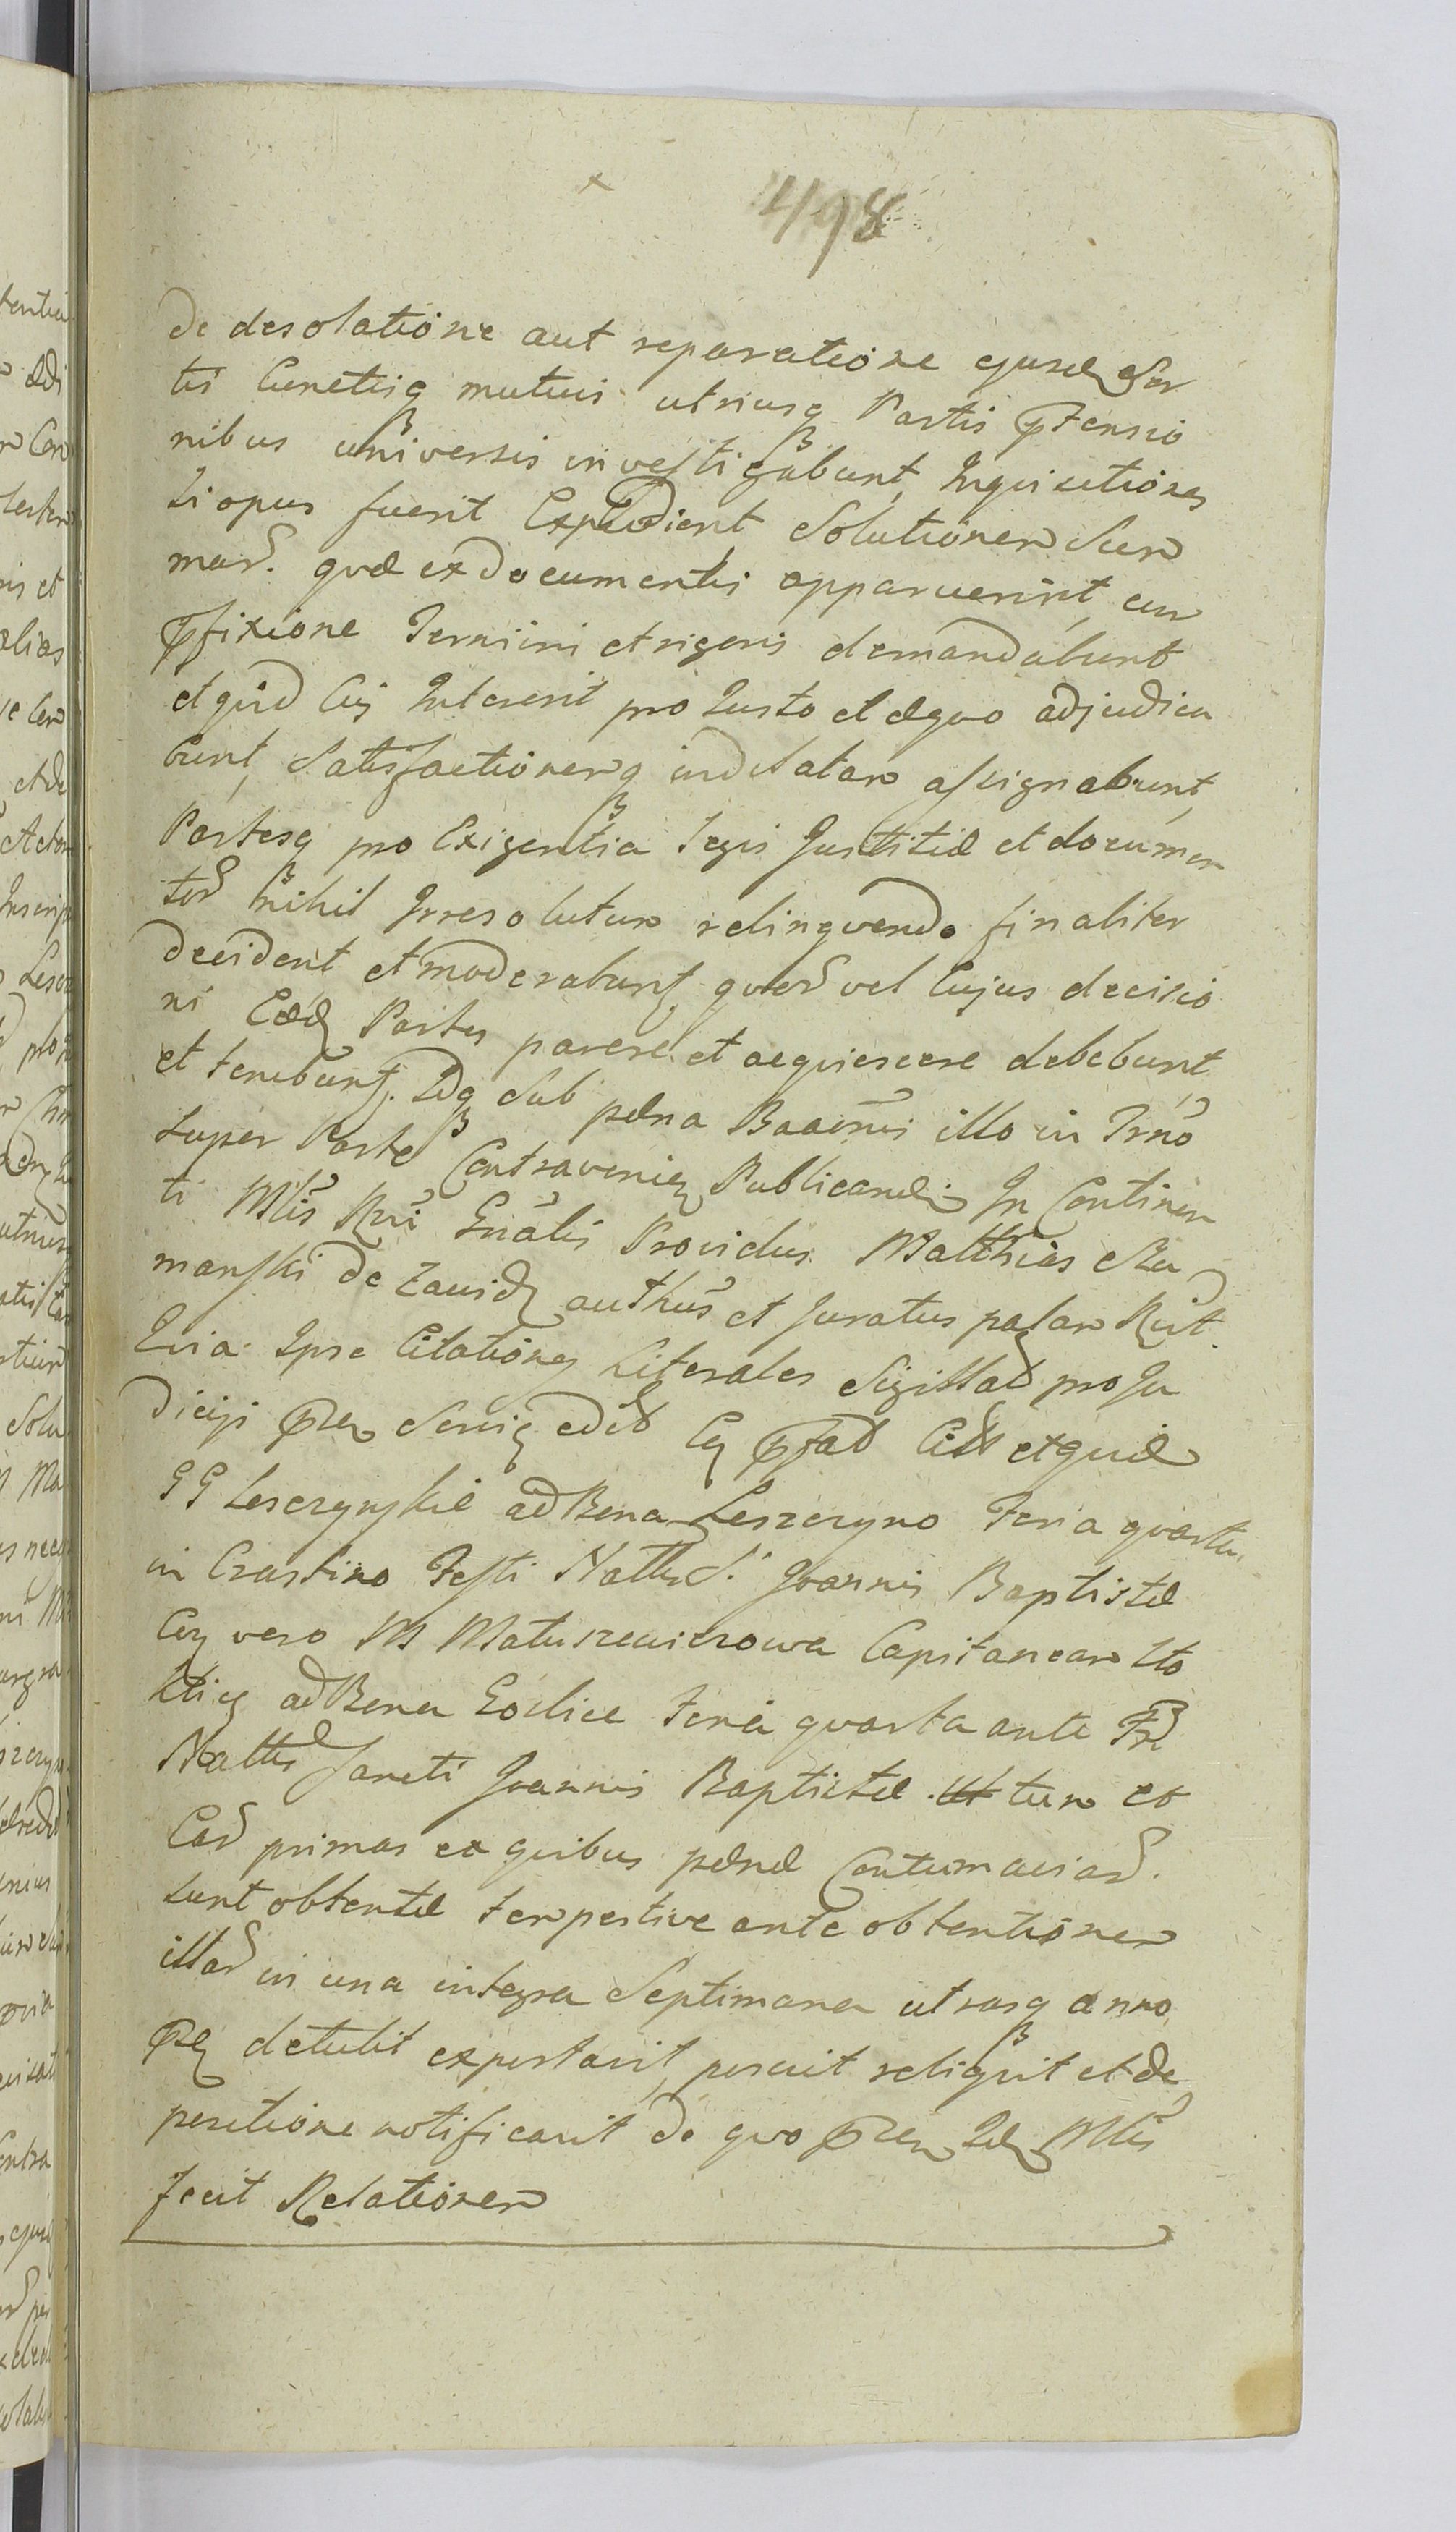 498
de desolatione aut reparatione ejusd. For
tis Cunctisq mutuis utriusq Partis pTensio
nibus universis investigabunt, Inquisitiones
si opus fuerit Expedient Solutionem Sum
mar. quæ ex documentis apparuerint, cum
pfixione Termini et rigoris demandabunt
et quid Cuj Intererit pro Justo et æquo adjudica
bunt, Satisfactionemq indilatam assignabunt,
Partesq pro Exigentia Legis Justitiæ et documen
tor nihil Irresolutum relinquendo finaliter
decident et moderabunt, quor vel Cujus decisio
ni Eæd Partes parere et acquiescere debebunt
et tenebunt. Idq Sub pæna Baañis illo in Trño
super Parte Contravenien Publicandis In Continen
ti Mlis Rñi Gnãlis Providus Matthias Ru
manski de Zawid authũs et Juratus palam Rũt.
Quia Ipse Citationes Literales Sigillat pro Ju
dicijs pn Servien edit Cop pfat Cit et quid
GG Lesczynskie ad Bona Leszczyno Feria quarta
in Crastino Festi Nattis S. Joannis Baptistæ
Cop vero M Matuszewiczowa Capitaneam Sto
klic ad Bona Goslice Feria quarta ante Fst
Nattis Sancti Joannis Baptistæ tum et
Cop primas ex quibus pænæ Contumaciar.
sunt obtentæ tempestive ante obtentionem
illar in una integra Septimana utrasq anno
pn detulit exportavit, posuit reliquit et de
positione notificavit de quo pn Id Mlis
fecit Relationem